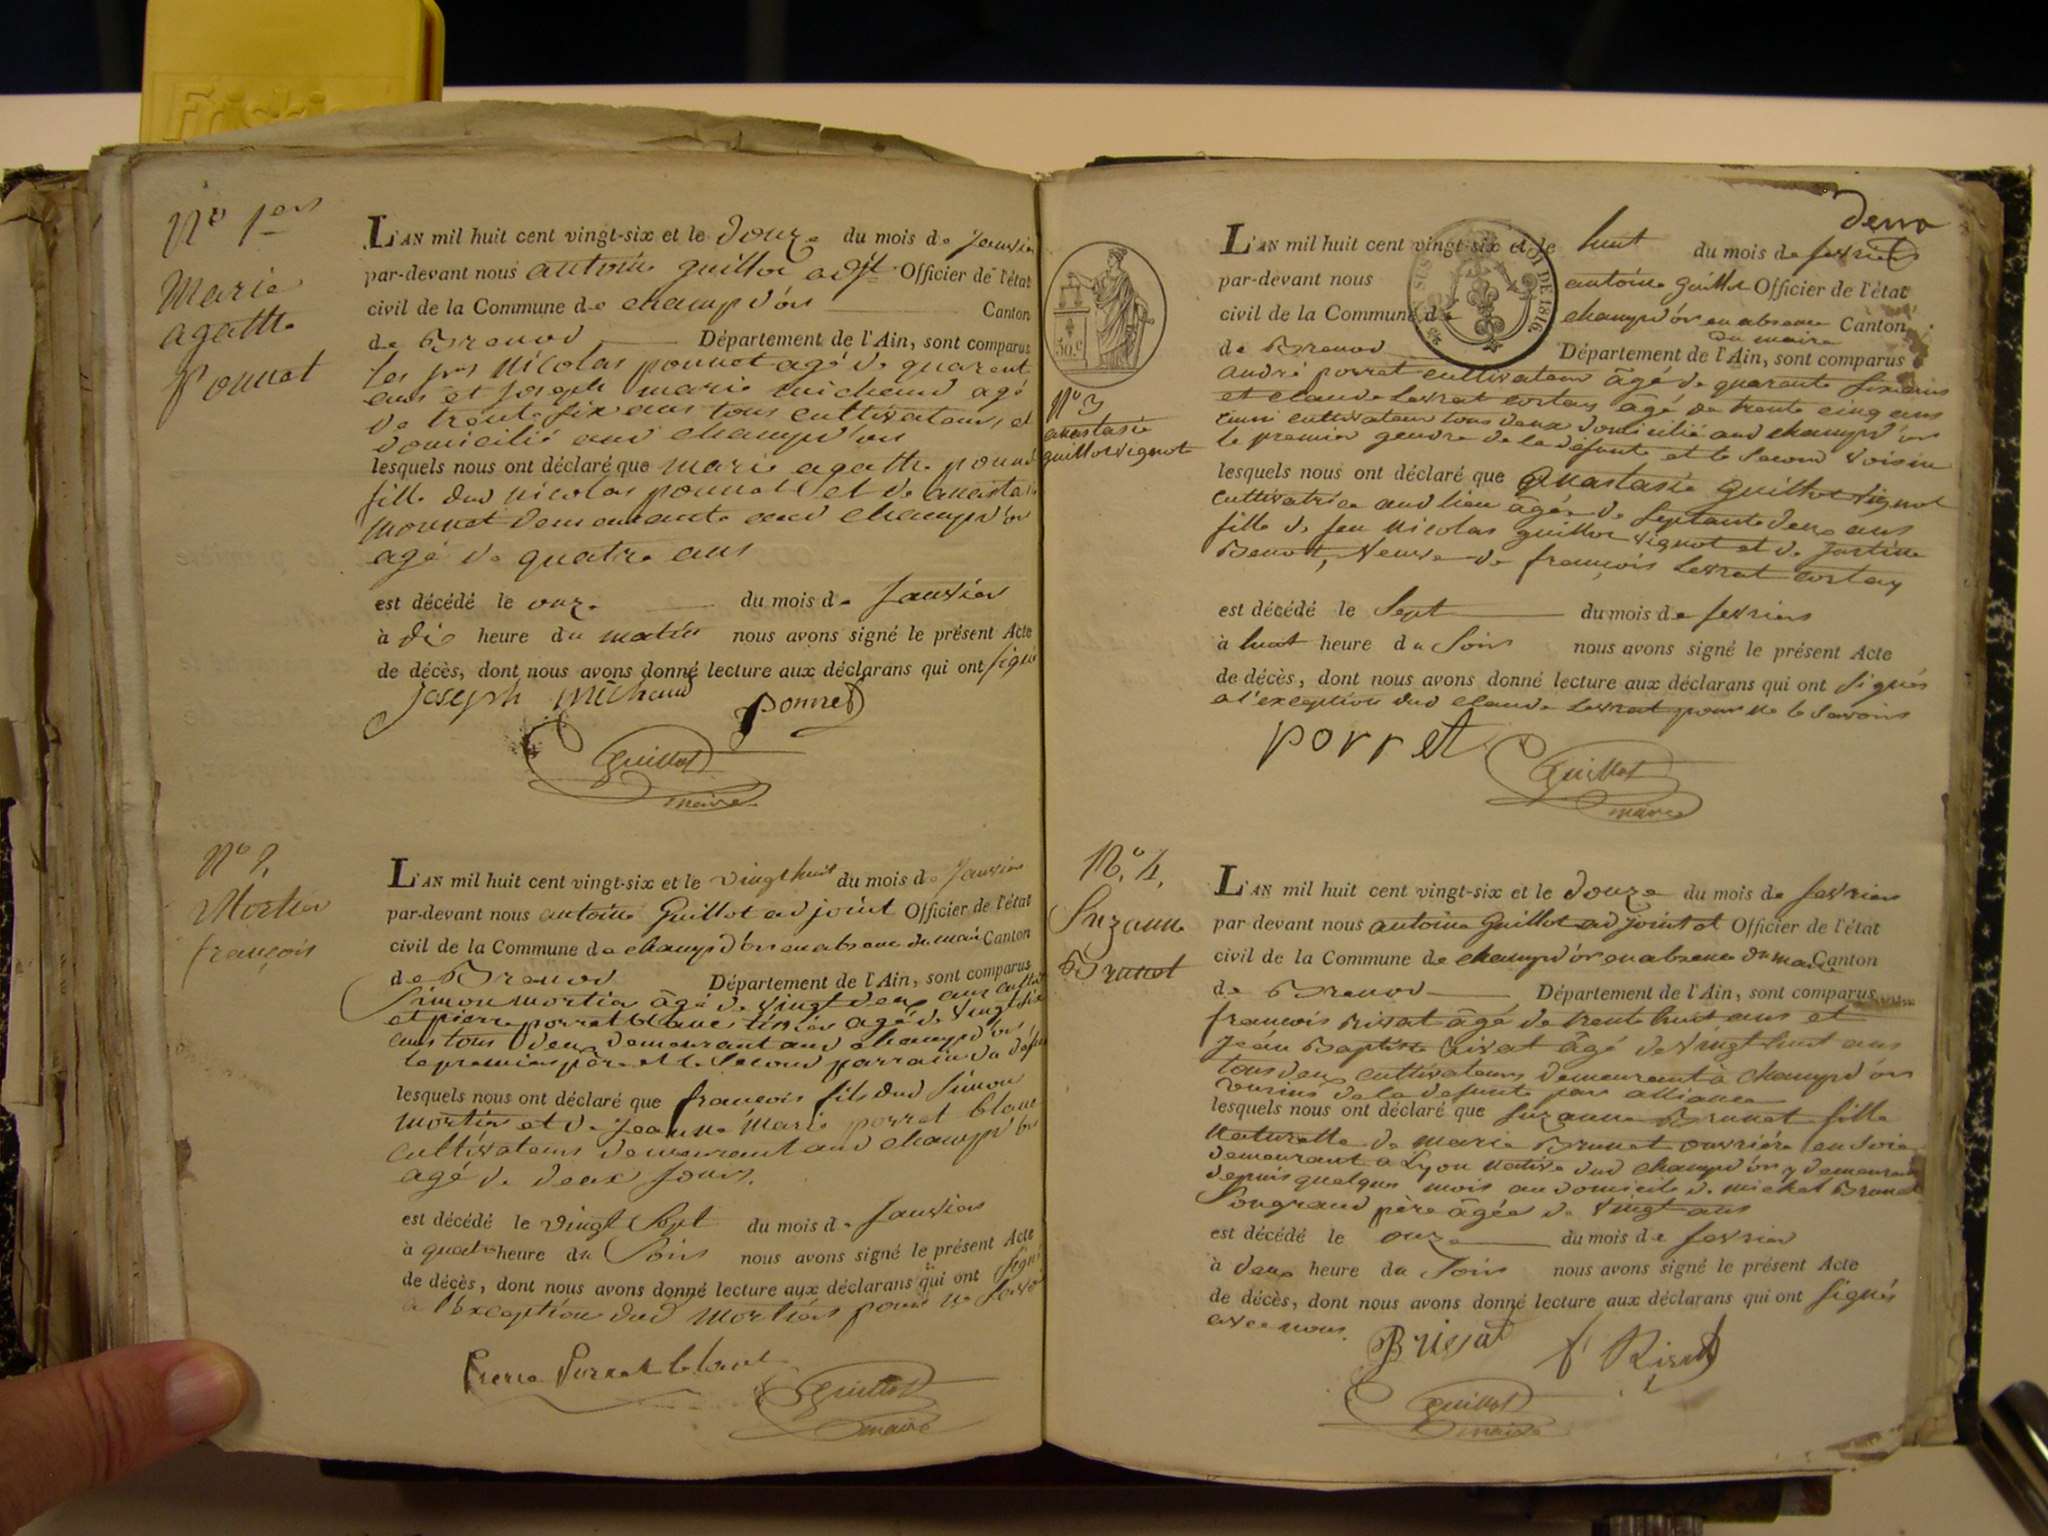 N° 1er
Marie
agathe
Ponnet
L'AN mil huit cent vingt-six et le Douze du mois de Janvier
par-devant nous antoine guillot adjt Officier de l'état
civil de la Commune de champd'or Canton
de Brenod Département de l'Ain, sont comparus
les Nicolas ponnet agé de quarent
ans et Joseph marie micheud agé
de trente six ans tous cultivateurs, et
domicilié aud champd'or
lesquels nous ont déclaré que marie agathe ponnet
fille dud nicolas ponnet et de anastasie
monnet demeurante aud champd'or
agé de quatre ans
est décédé le onze du mois de Janvier
à dix heure du matin nous avons signé le présent Acte
de décès, dont nous avons donné lecture aux déclarans qui ont signé
Joseph Michaud ponnet
Guillot
maire
N° 2,
Mortier
françois
L'AN mil huit cent vingt-six et le vingt huit du mois de Janvier
par-devant nous antoine Guillot adjoint Officier de l'état
civil de la Commune de champd'or en absence du mair Canton
de Brenod Département de l'Ain, sont comparus
Simon mortier âgé de vingt deux ans
et pierre porret blanc agé de vingt six
ans tous deux demeurant aud champd'or
le premier père et le second parrain du
lesquels nous ont déclaré que françois fils dud Simon
mortier et de Jeanne Marie porret blanc
cultivateurs demeurant aud champd'or
agé de deux jours.
est décédé le vingt Sept du mois de Janvier
à quatre heure du Soir nous avons signé le présent Acte
de décès, dont nous avons donné lecture aux déclarans qui ont signé
a l'exception dud mortier pour ne savoir
Pierre Porret le blanc
Guillot
maire
deux
SUS LOI DE 1816
50.c
N° 3
anastasie
guillot vignot
L'AN mil huit cent vingt-six et le huit du mois de fevrier
par-devant nous antoine guillot Officier de l'état
civil de la Commune de champd'or en absence Canton
du maire
de Brenod Département de l'Ain, sont comparus
andré porret cultivateur âgé de quarante six ans
et claude Levrat cortay âgé de trente cinq ans
aussi cultivateur tous deux domicilié aud champd'or
le premier gendre de la défunte et le second voisin
lesquels nous ont déclaré que anastasie guillot vignot
cultivatrice aud lieu âgée de septante deux ans
fille de feu nicolas guillot vignot et de Justine
Benoit, veuve de françois Levrat cortay
est décédé le Sept du mois de fevrier
à huit heure du Soir nous avons signé le présent Acte
de décès, dont nous avons donné lecture aux déclarans qui ont signés
a l'exception dud claude Levrat pour ne le savoir
porret Guillot
maire
N°. 4.
Suzanne
Brunet
L'AN mil huit cent vingt-six et le douze du mois de fevrier
par devant nous antoine Guillot adjoint et Officier de l'état
civil de la Commune de champd'or en absence du maire Canton
de Brenod Département de l'Ain, sont comparus
françois Rivat âgé de trente huit ans et
Jean Baptiste Rivat âgé de vingt huit ans
tous deux cultivateurs demeurant à champd'or
voisins de la defunte par alliance
lesquels nous ont déclaré que suzanne Brunet fille
naturelle de marie Brunet ouvrière en soie
demeurant a Lyon native dud champd'or y demeurant
depuis quelques mois au domicile de michel Brunet
son grand père âgée de vingt ans
est décédé le onze du mois de fevrier
à deux heure du Soir nous avons signé le présent Acte
de décès, dont nous avons donné lecture aux déclarans qui ont signés
avec nous. f Rivat
Guillot
maire